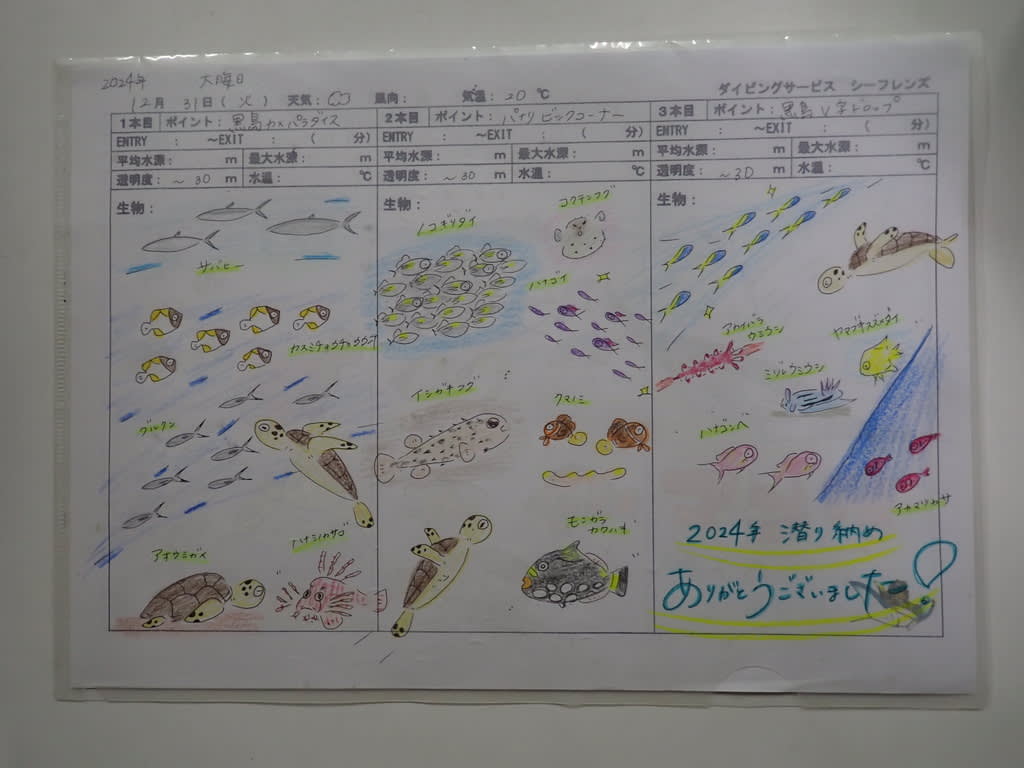 2024年 大晦日
ダイビングサービス シーフレンズ
12月 31日(火) 天気: 風向: 気温: 20 ℃
1本目 ポイント: 黒島カメパラダイス
ENTRY : ～EXIT : ( 分)
平均水深: m 最大水深: m
透明度: ～30 m 水温: ℃
生物:
サバヒー
カスミチョウチョウウオ
グルクン
アオウミガメ
ハナミノカサゴ
2本目 ポイント: パナリ ビックコーナー
ENTRY : ～EXIT : ( 分)
平均水深: m 最大水深: m
透明度: ～30 m 水温: ℃
生物:
ノコギリダイ
コクテンフグ
ハナゴイ
イシガキフグ
クマノミ
モンガラ
カワハギ
3本目 ポイント: 黒島 V字ドロップ
ENTRY : ～EXIT : ( 分)
平均水深: m 最大水深: m
透明度: ～30 m 水温: ℃
生物:
アカイバラ
ウミウシ
ヤマブキスズメダイ
ミゾレウミウシ
ハナゴンベ
アカマツカサ
2024年 潜り納め
ありがとうございました